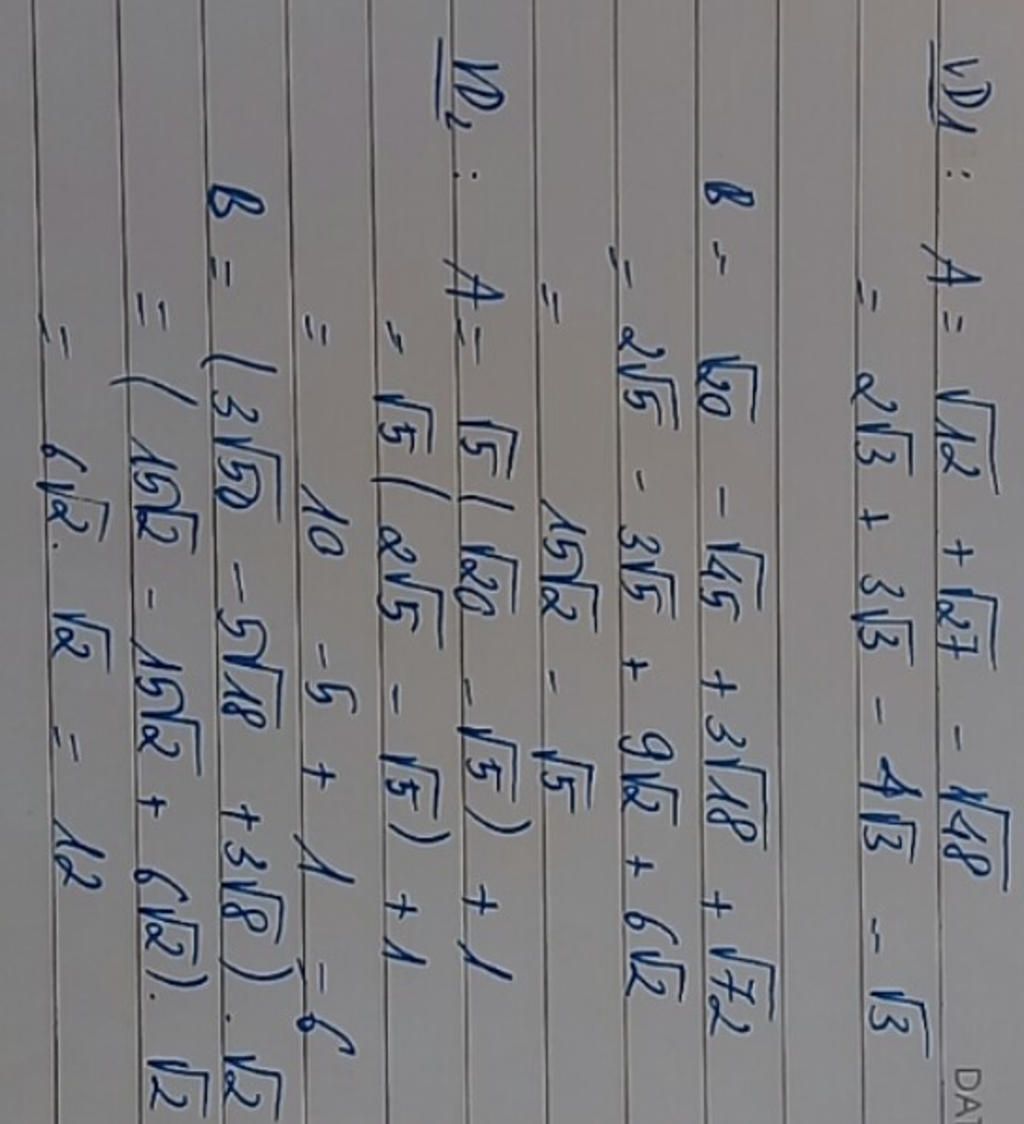 DAT
VD1: A = √12 + √27 - √48
= 2√3 + 3√3 - 4√3 = √3
B = √20 - √45 + 3√18 + √72
= 2√5 - 3√5 + 9√2 + 6√2
= 15√2 - √5
VD2: A = √5(√20 - √5) + 1
= √5(2√5 - √5) + 1
= 10 - 5 + 1 = 6
B = (3√50 - 5√18 + 3√8).√2
= (15√2 - 15√2 + 6√2).√2
= 6√2.√2 = 12